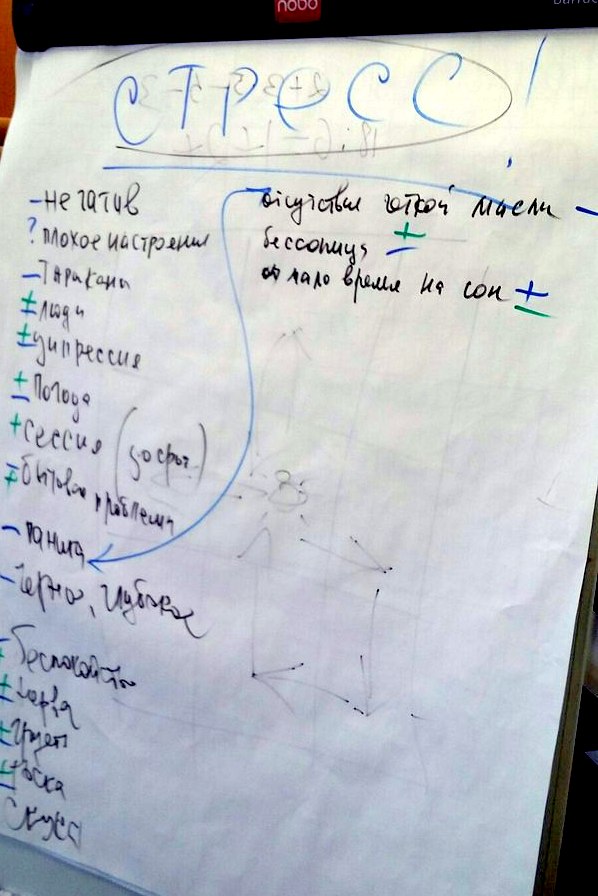 nobo
СТРЕСС!
- негатив
? плохое настроения
- Тараканы
± люди
± диппрессия
± Погода
+ сессия (досроч.)
∓ бытовые проблемы
- паника
- Черное, глубокое
- беспокойство
± нервы
± грусть
± тоска
Скука
отсутствие чёткой мысли -
бессоница + -
мало время на сон ±